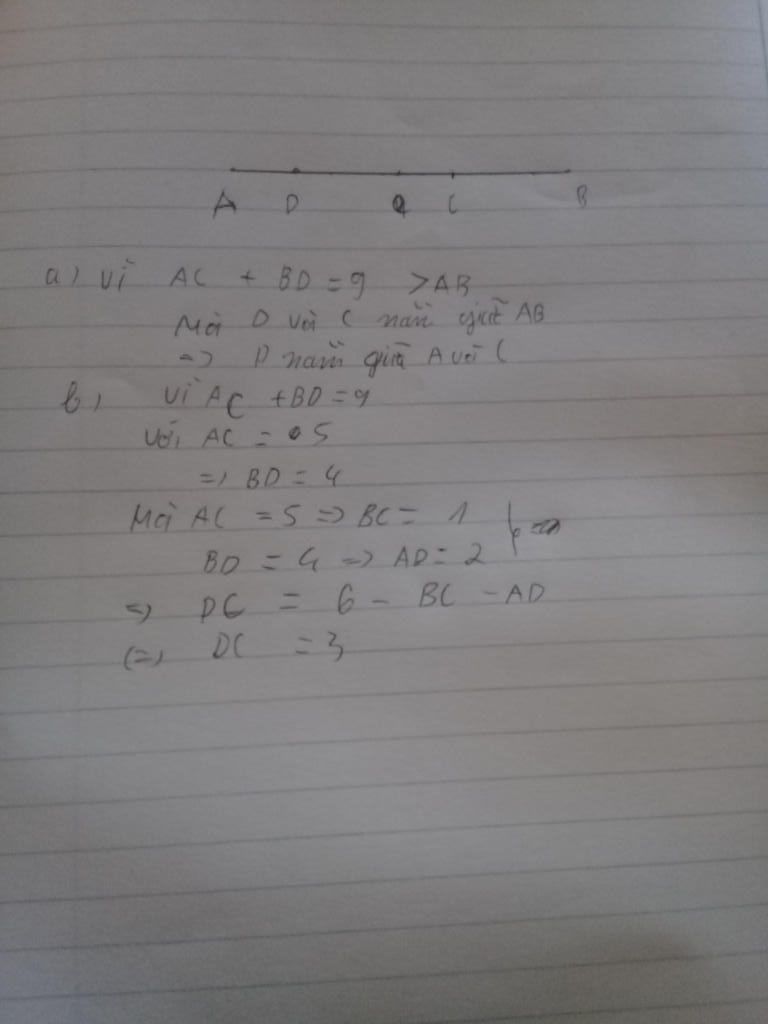 A D C B
a) Vì AC + BD = 9 > AB
Mà D và C nằm giữa AB
=> D nằm giữa A và C
b) Vì AC + BD = 9
Với AC = 5
=> BD = 4
Mà AC = 5 => BC = 1
BD = 4 => AD = 2
=> DC = 6 - BC - AD
(=) DC = 3